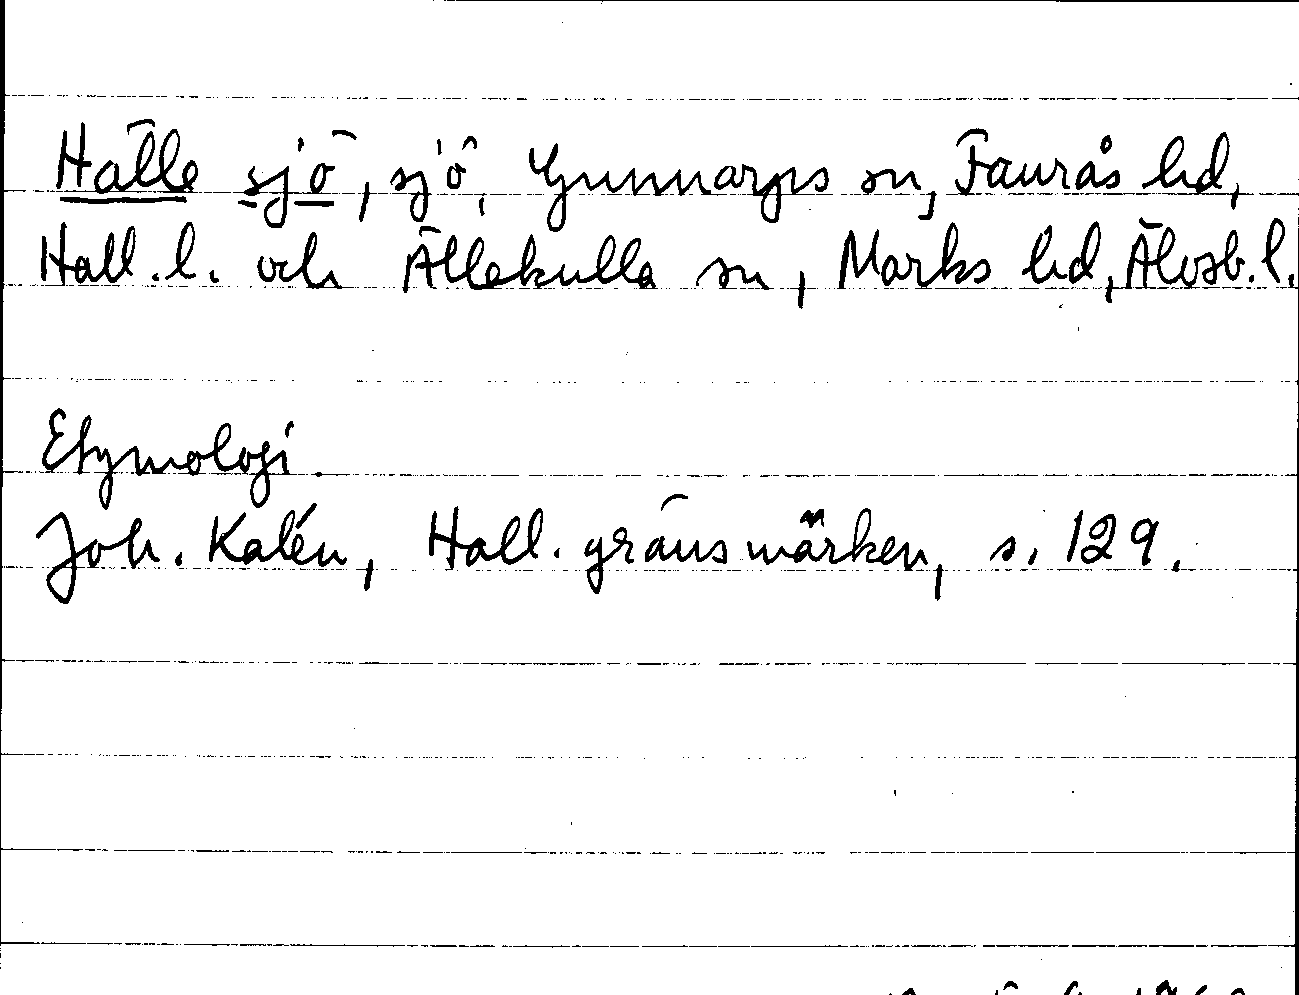 Hälle sjö, sjö, Gunnarps sn, Faurås hd,
Hall. l. och Ällekulla sn, Marks hd, Älvsb. l.
Etymologi.
Joh. Kalén, Hall. gränsmärken, s. 129.